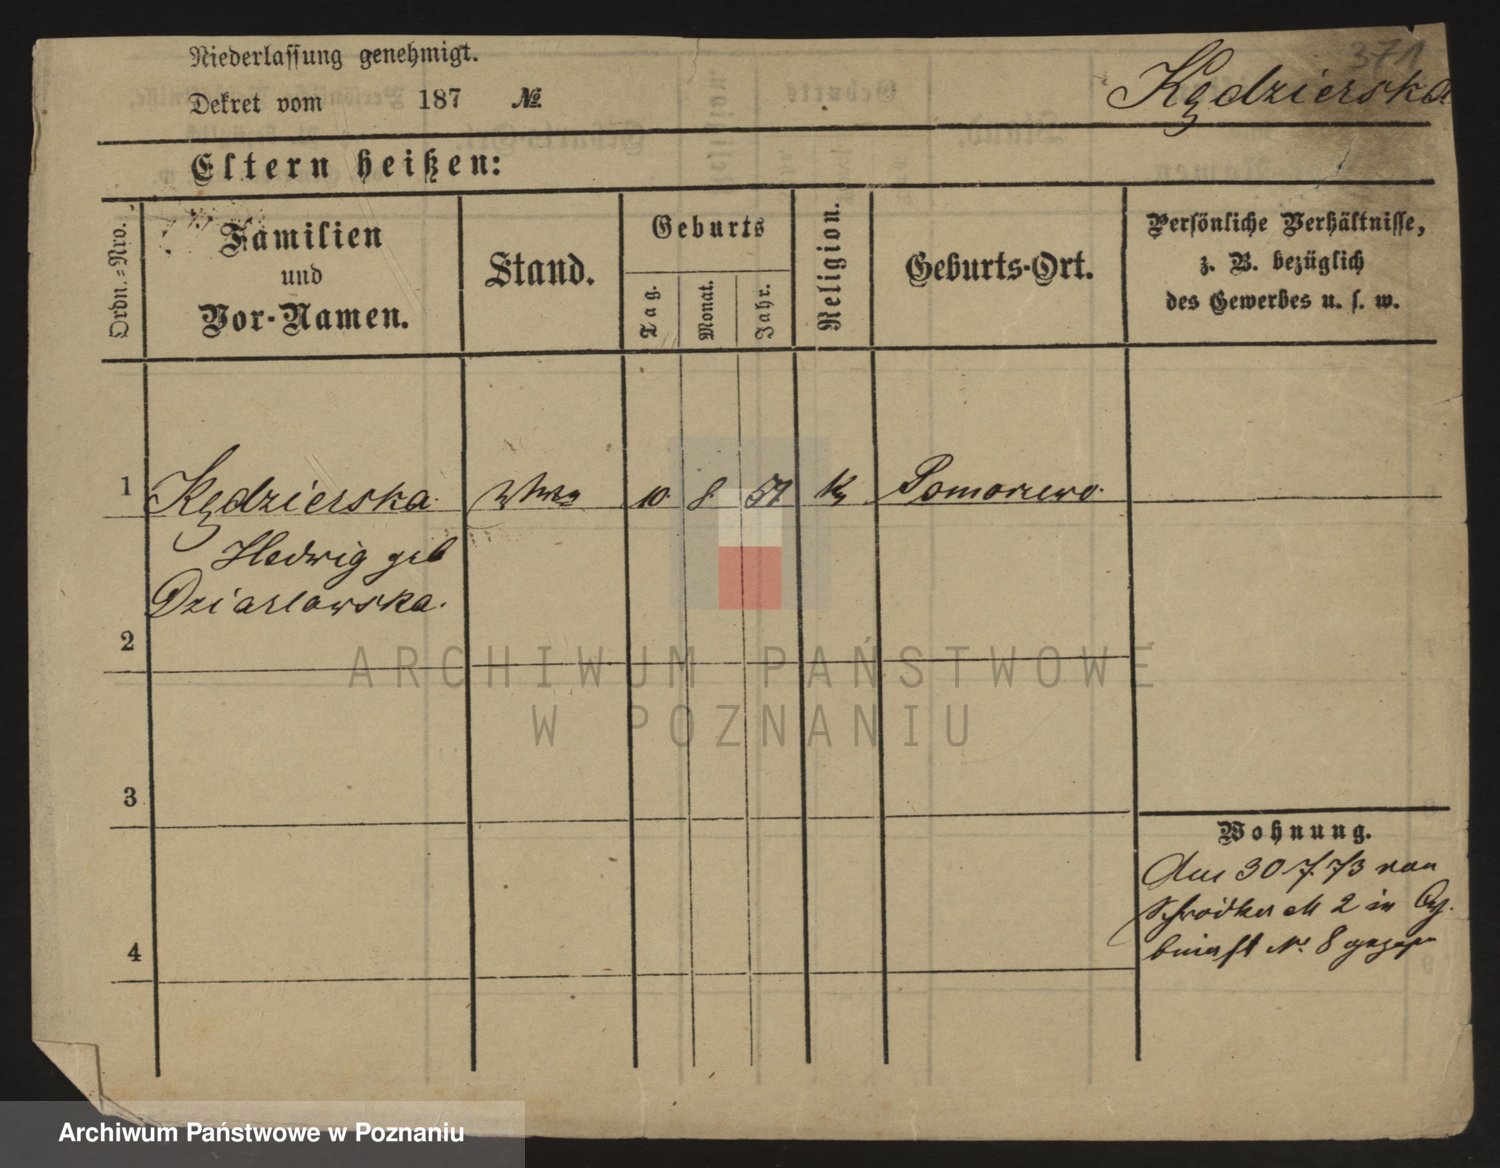 371
Niederlassung genehmigt.
Kędzierska
Dekret vom 187 №
Eltern heißen:
Ordn.-Nro.
Familien
und
Vor-Namen.
Stand.
Geburts
Tag.
Monat.
Jahr.
Religion.
Geburts-Ort.
Persönliche Verhältnisse,
z. B. bezüglich
des Gewerbes u. s. w.
1 Kędzierska 10 8 51 Pomorzewo.
Hedwig geb
Dziarlowska.
2
3
4
Wohnung.
Am 30 7. 73 von
2 in
No 8
ARCHIWUM PAŃSTWOWE
W POZNANIU
Archiwum Państwowe w Poznaniu